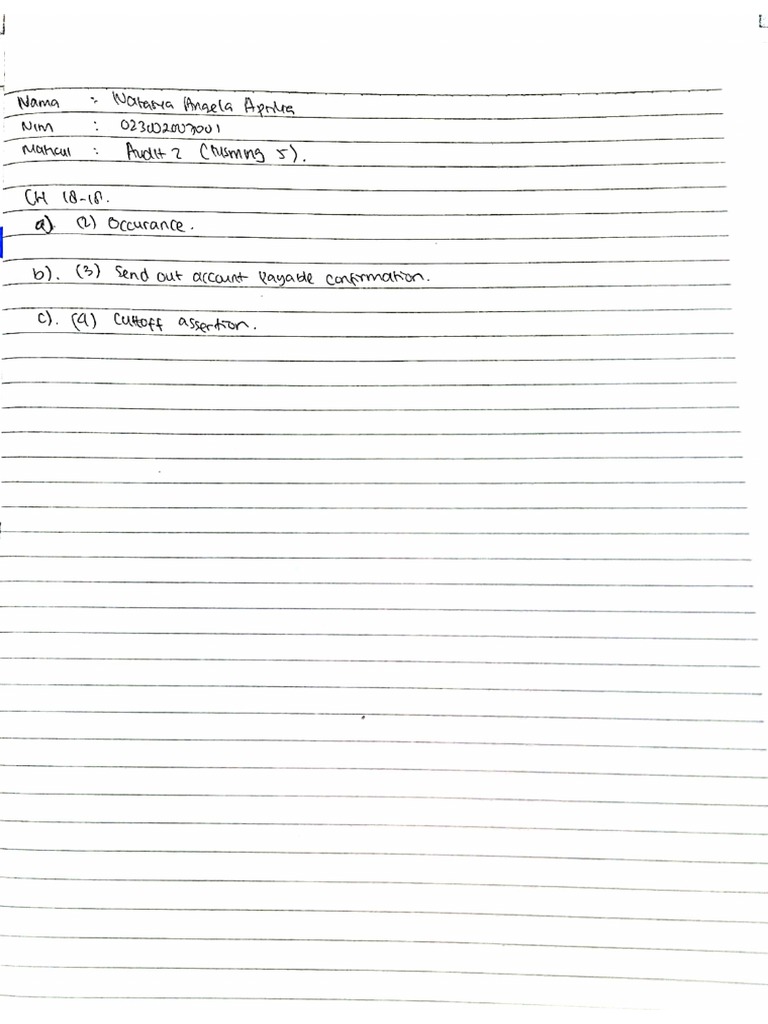 Nama : Natasya Angela Aprilia
Nim : 023002007001
Matkul : Audit 2 (
5).
CH 18-18.
a) (2) Occurance.
b). (3) Send out account payable confirmation.
c). (4) Cuttoff assertion.